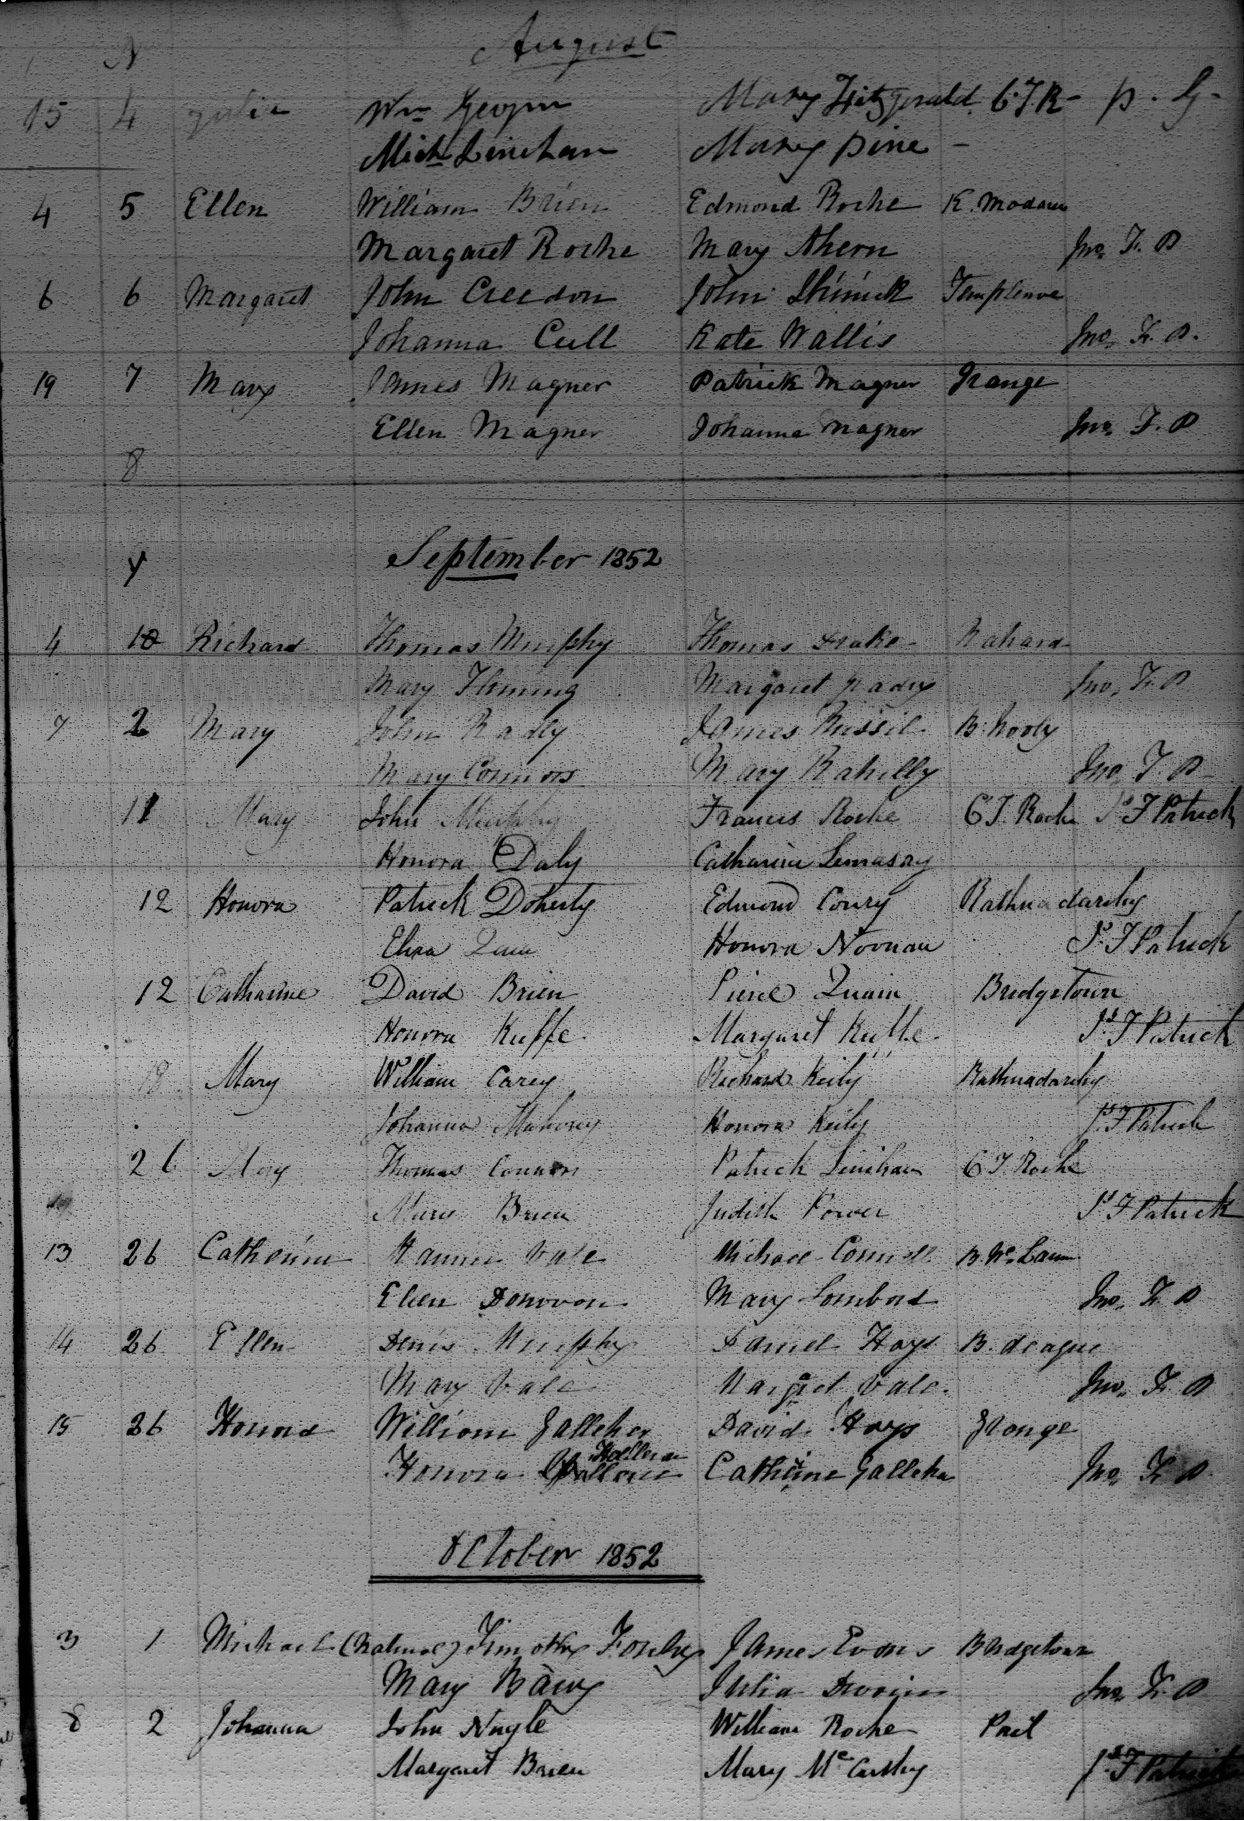 August
15 4 Julia Wm Mary Fitzgerald C.T.R- P. G-
Mich Linehan Mary Pine -
4 5 Ellen William Brien Edmond Roche K. Madam
Margaret Roche Mary Ahern Jno. F. P
6 6 Margaret John Creedon John Shinick Templenoe
Johanna Cull Kate Wallis Jno. F. P.
19 7 Mary James Magner Patrick Magner Grange
Ellen Magner Johanna Magner Jno. F. P
8
September 1852
4 Richard Thomas Murphy Thomas Drake Rahard
Mary Fleming Margaret Jno. F. P
7 2 Mary John Rady James Russil B. hooly
Mary Connors Mary Rahilly Jno. F. P
11 Mary John Murphy Francis Roche C T Roche Js F Patrick
Honora Daly Catharine
12 Honora Patrick Doherty Edmond Coury
Eliza Quin Honora Noonan Js F Patrick
12 Catharine David Brien Pierce Quain Bridgetown
Honora Keeffe Margaret Keeffe Js F Patrick
18 Mary William Carey Richard Keily
Johanna Mahony Honora Keily Js F Patrick
26 Mary Thomas Connors Patrick Linihan C T Roche
Mary Brien Judith Power Js F Patrick
13 26 Catherine Vale Michael Connell
Ellen Donovon Mary Lombard Jno. F. P
14 26 Ellen Denis Murphy Daniel Hays B. deague
Mary Vale Margret Vale. Jno. F. P
15 26 Honora William Galleher David Hays Grange
Halloran
Honora Catherine Galleher Jno. F. P.
October 1852
3 1 Michael (Natural) Timothy James Evans Bridgetown
Mary Barry Julia Jno. F. P
8 2 Johanna John Nagle William Roche Park
Margaret Brien Mary McCarthy Js F Patrick